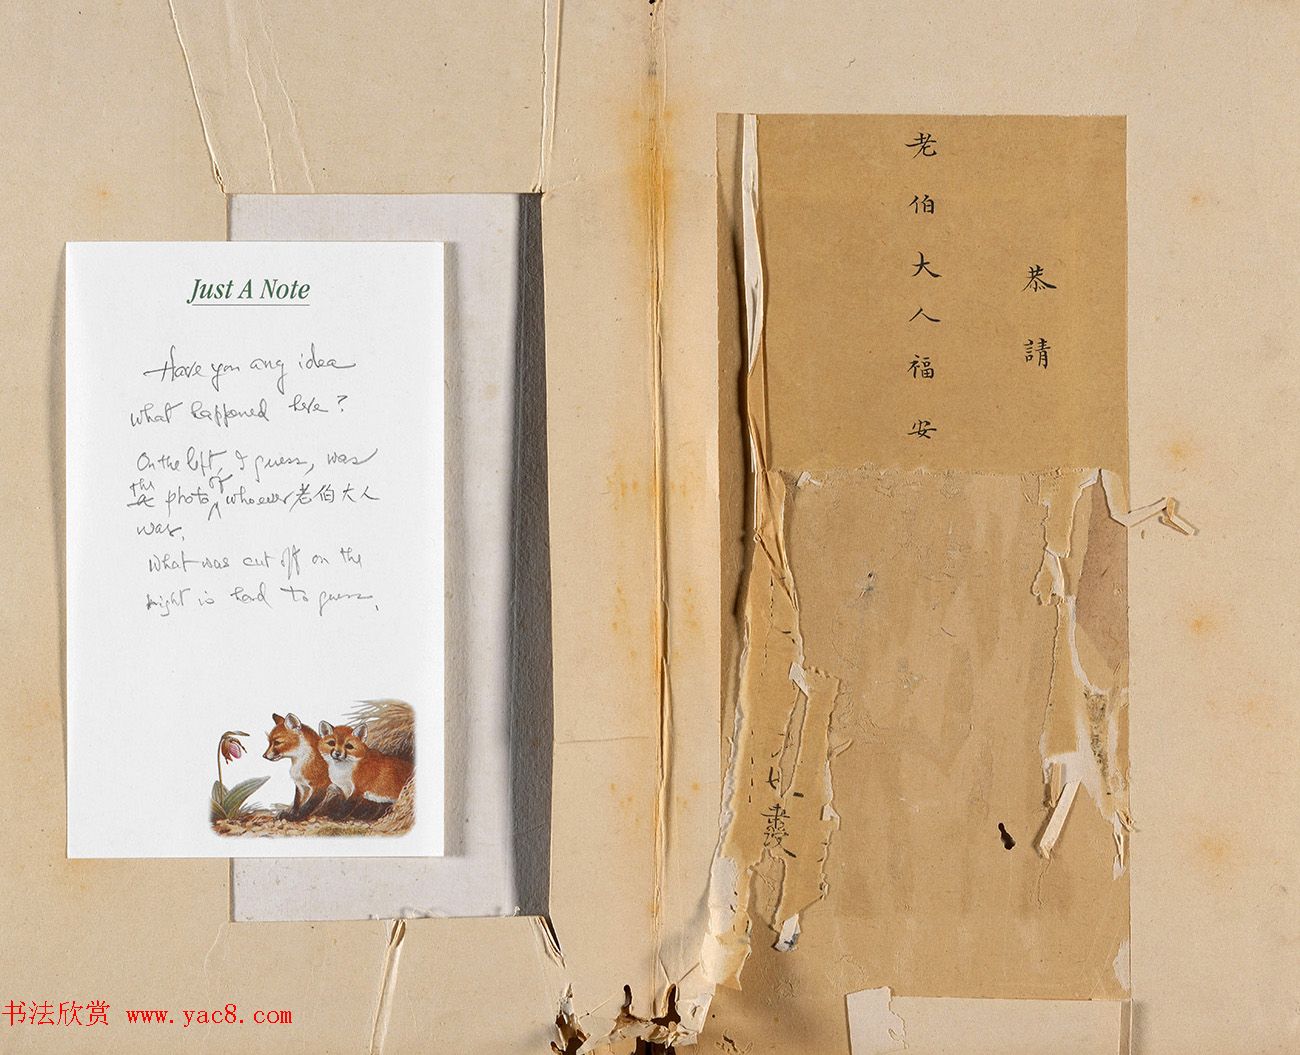 Just A Note
Have you any idea
what happened here?
On the left, I guess, was
the photo of whoever 老伯大人
was.
What was cut off on the
right is hard to guess.
恭請
老伯大人福安
书法欣赏 www.yac8.com